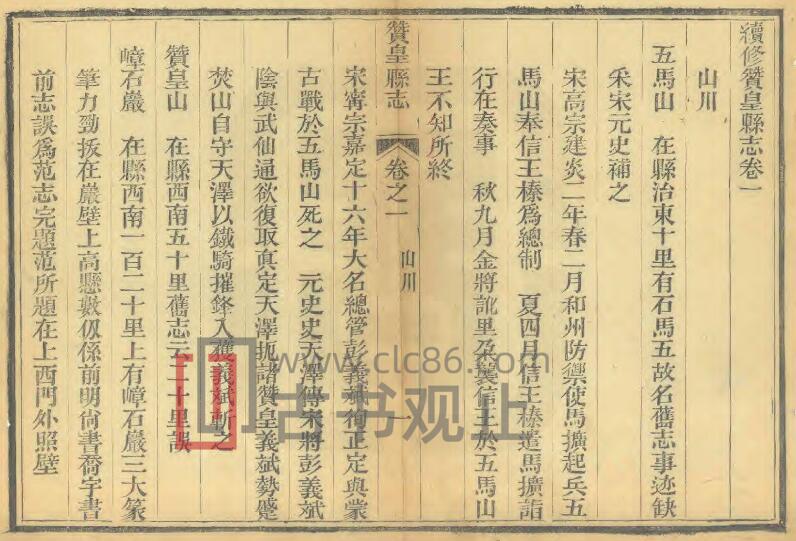 續修贊皇縣志卷一
山川
五馬山　在縣治東十里有石馬五故名舊志事迹缺
采宋元史補之
宋高宗建炎二年春二月和州防禦使馬擴起兵五
馬山奉信王榛爲總制　夏四月信王榛遣馬擴詣
行在奏事　秋九月金將訛里朶襲信王於五馬山
王不知所終
贊皇縣志　卷之一　山川　一
宋甯宗嘉定十六年大名總管彭義斌徇正定與蒙
古戰於五馬山死之　元史史天澤傳宋將彭義斌
陰與武仙通欲復取眞定天澤扼諸贊皇義斌勢蹙
焚山自守天澤以鐵騎摧鋒入獲義斌斬之
贊皇山　在縣西南五十里舊志云二十里誤
嶂石巖　在縣西南一百二十里上有嶂石巖三大篆
筆力勁拔在巖壁上高懸數仭係前明尚書喬宇書
前志誤爲范志完題范所題在上西門外照壁
www.clc86.com
古书观上